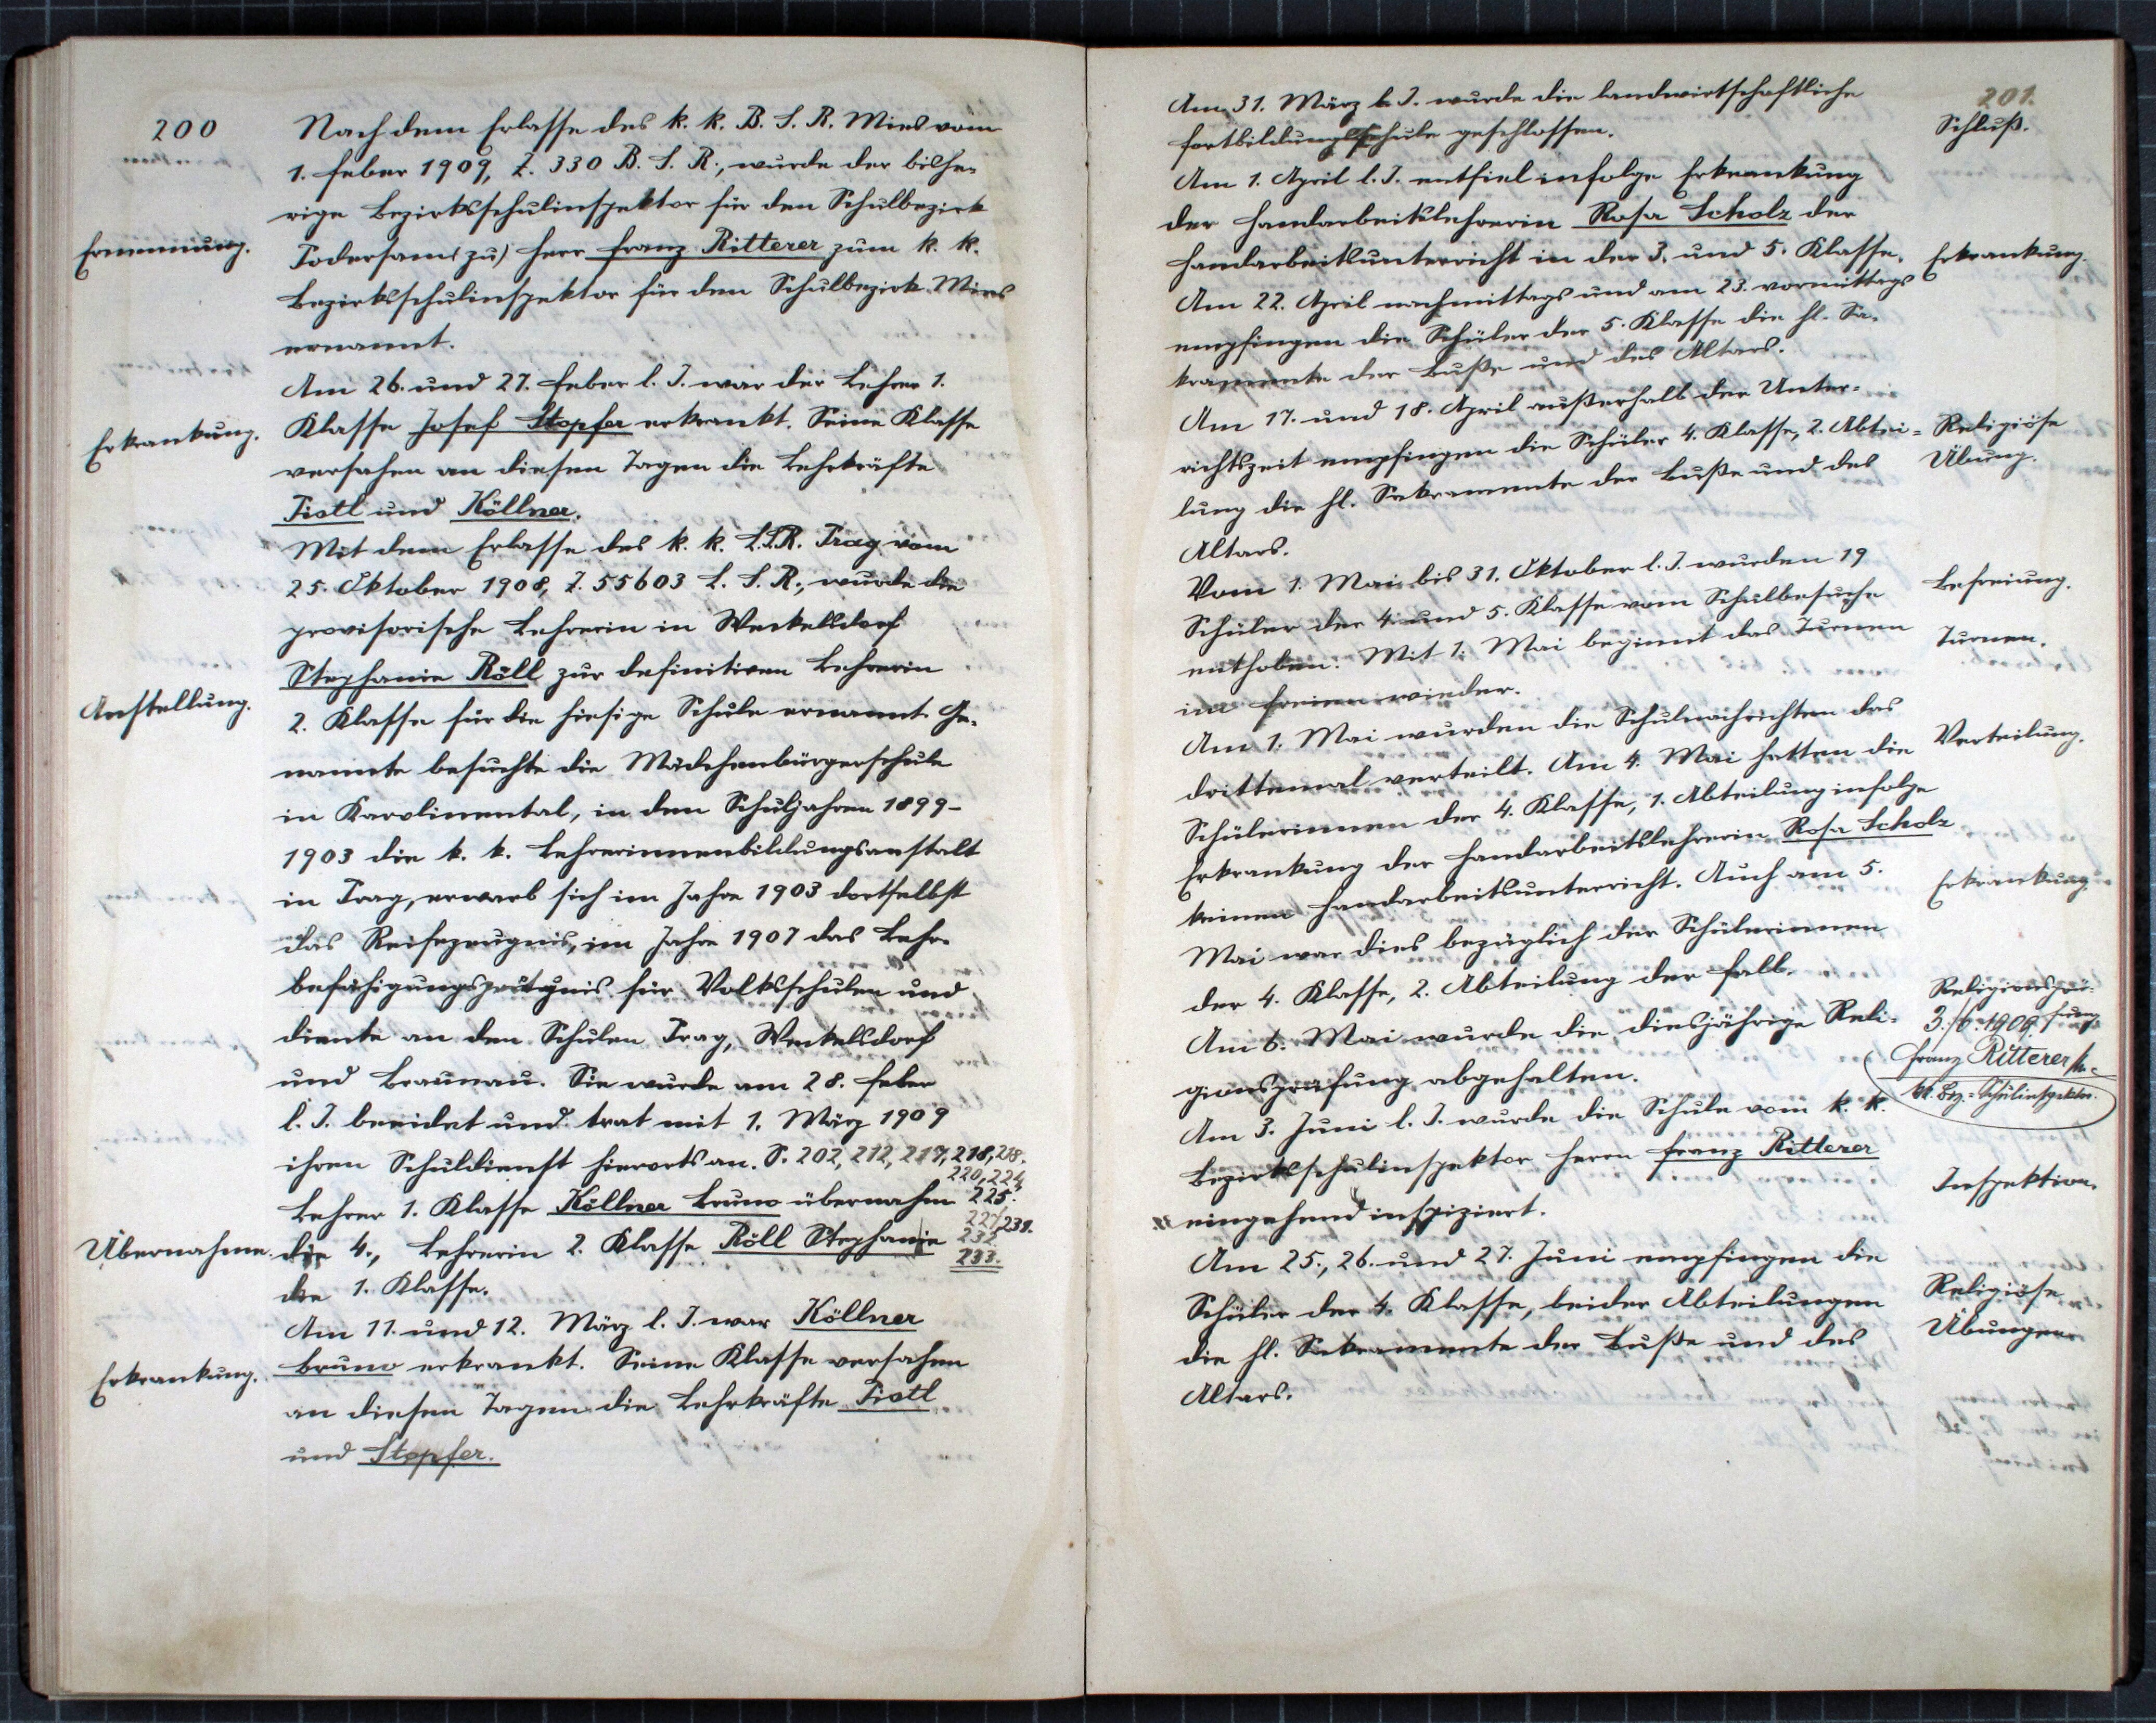 200
Nach dem Erlasse des k. k. B. S. R. Mies vom
1. Feber 1909, Z. 330 B. S. R., wurde der bishe-
rige Bezirksschulinspektor für den Schulbezirk
Ernennung.
Podersam Herr Franz Ritterer zum k. k.
Bezirksschulinspektor für den Schulbezirk Mies
ernannt.
Am 26. und 27. Feber l. J. war der Lehrer 1.
Erkrankung.
Klasse Josef Stopfer erkrankt. Seine Klasse
versahen an diesen Tagen die Lehrkräfte
Tistl und Köllner.
Mit dem Erlasse des k. k. L.S.R. Prag vom
25. Oktober 1908, Z. 55603 L. S. R., wurde die
provisorische Lehrerin in Weckelsdorf
Stephanie Röll zur definitiven Lehrerin
Anstellung.
2. Klasse für die hiesige Schule ernannt. Ge-
nannte besuchte die Mädchenbürgerschule
in Karolinental, in den Schuljahren 1899-
1903 die k. k. Lehrerinnenbildungsanstalt
in Prag, erwarb sich im Jahre 1903 dortselbst
das Reifezeugnis, im Jahre 1907 das Lehr-
befähigungszeugnis für Volksschulen und
diente an den Schulen Prag, Weckelsdorf
und Braunau. Sie wurde am 28. Feber
l. J. beeidet und trat mit 1. März 1909
ihren Schuldienst hierorts an. S. 202, 212, 217, 218,
220, 224
Lehrer 1. Klasse Köllner Bruno übernahm 225.
227, 231.
Übernahme.
die 4., Lehrerin 2. Klasse Röll Stephanie 232
233.
die 1. Klasse.
Am 11. und 12. März l. J. war Köllner
Erkrankung.
Bruno erkrankt. Seine Klasse versahen
an diesen Tagen die Lehrkräfte Tistl
und Stopfer.
201.
Am 31. März l. J. wurde die landwirtschaftliche
Schluß.
Fortbildungsschule geschlossen.
Am 1. April l. J. entfiel infolge Erkrankung
der Handarbeitslehrerin Rosa Scholz der
Handarbeitsunterricht in der 3. und 5. Klasse.
Erkrankung.
Am 22. April nachmittags und am 23. vormittags
empfingen die Schüler der 5. Klasse die hl. Sa-
kramente der Buße und des Altars.
Am 17. und 18. April außerhalb der Unter-
richtszeit empfingen die Schüler 4. Klasse, 2. Abtei-
Religiöse
Übung.
lung die hl. Sakramente der Buße und des
Altars.
Vom 1. Mai bis 31. Oktober l. J. wurden 19
Befreiung.
Schüler der 4. und 5. Klasse vom Schulbesuche
enthoben. Mit 1. Mai beginnt das Turnen
Turnen.
im Freien wieder.
Am 1. Mai wurden die Schulnachrichten das
drittemal verteilt. Am 4. Mai hatten die
Verteilung.
Schülerinnen der 4. Klasse, 1. Abteilung infolge
Erkrankung der Handarbeitslehrerin Rosa Scholz
keinen Handarbeitsunterricht. Auch am 5.
Erkrankung.
Mai war dies bezüglich der Schülerinnen
der 4. Klasse, 2. Abteilung der Fall.
Religionsprü-
fung
Am 6. Mai wurde die diesjährige Reli-
gionsprüfung abgehalten.
3./6. 1909.
Franz Ritterer
kk. Bez.-Schulinspektor.
Am 3. Juni l. J. wurde die Schule vom k. k.
Bezirksschulinspektor Herrn Franz Ritterer
Inspektion.
eingehend inspiziert.
Am 25., 26. und 27. Juni empfingen die
Schüler der 4. Klasse, beider Abteilungen
Religiöse
Übungen
die hl. Sakramente der Buße und des
Altars.